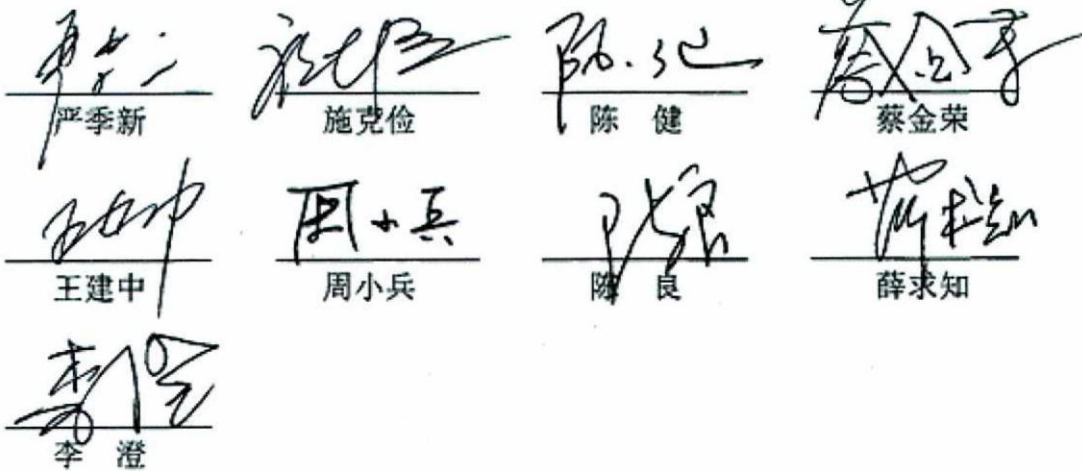 严季新 施克俭 陈 健 蔡金荣
王建中 周小兵 陈 良 薛求知
李 澄